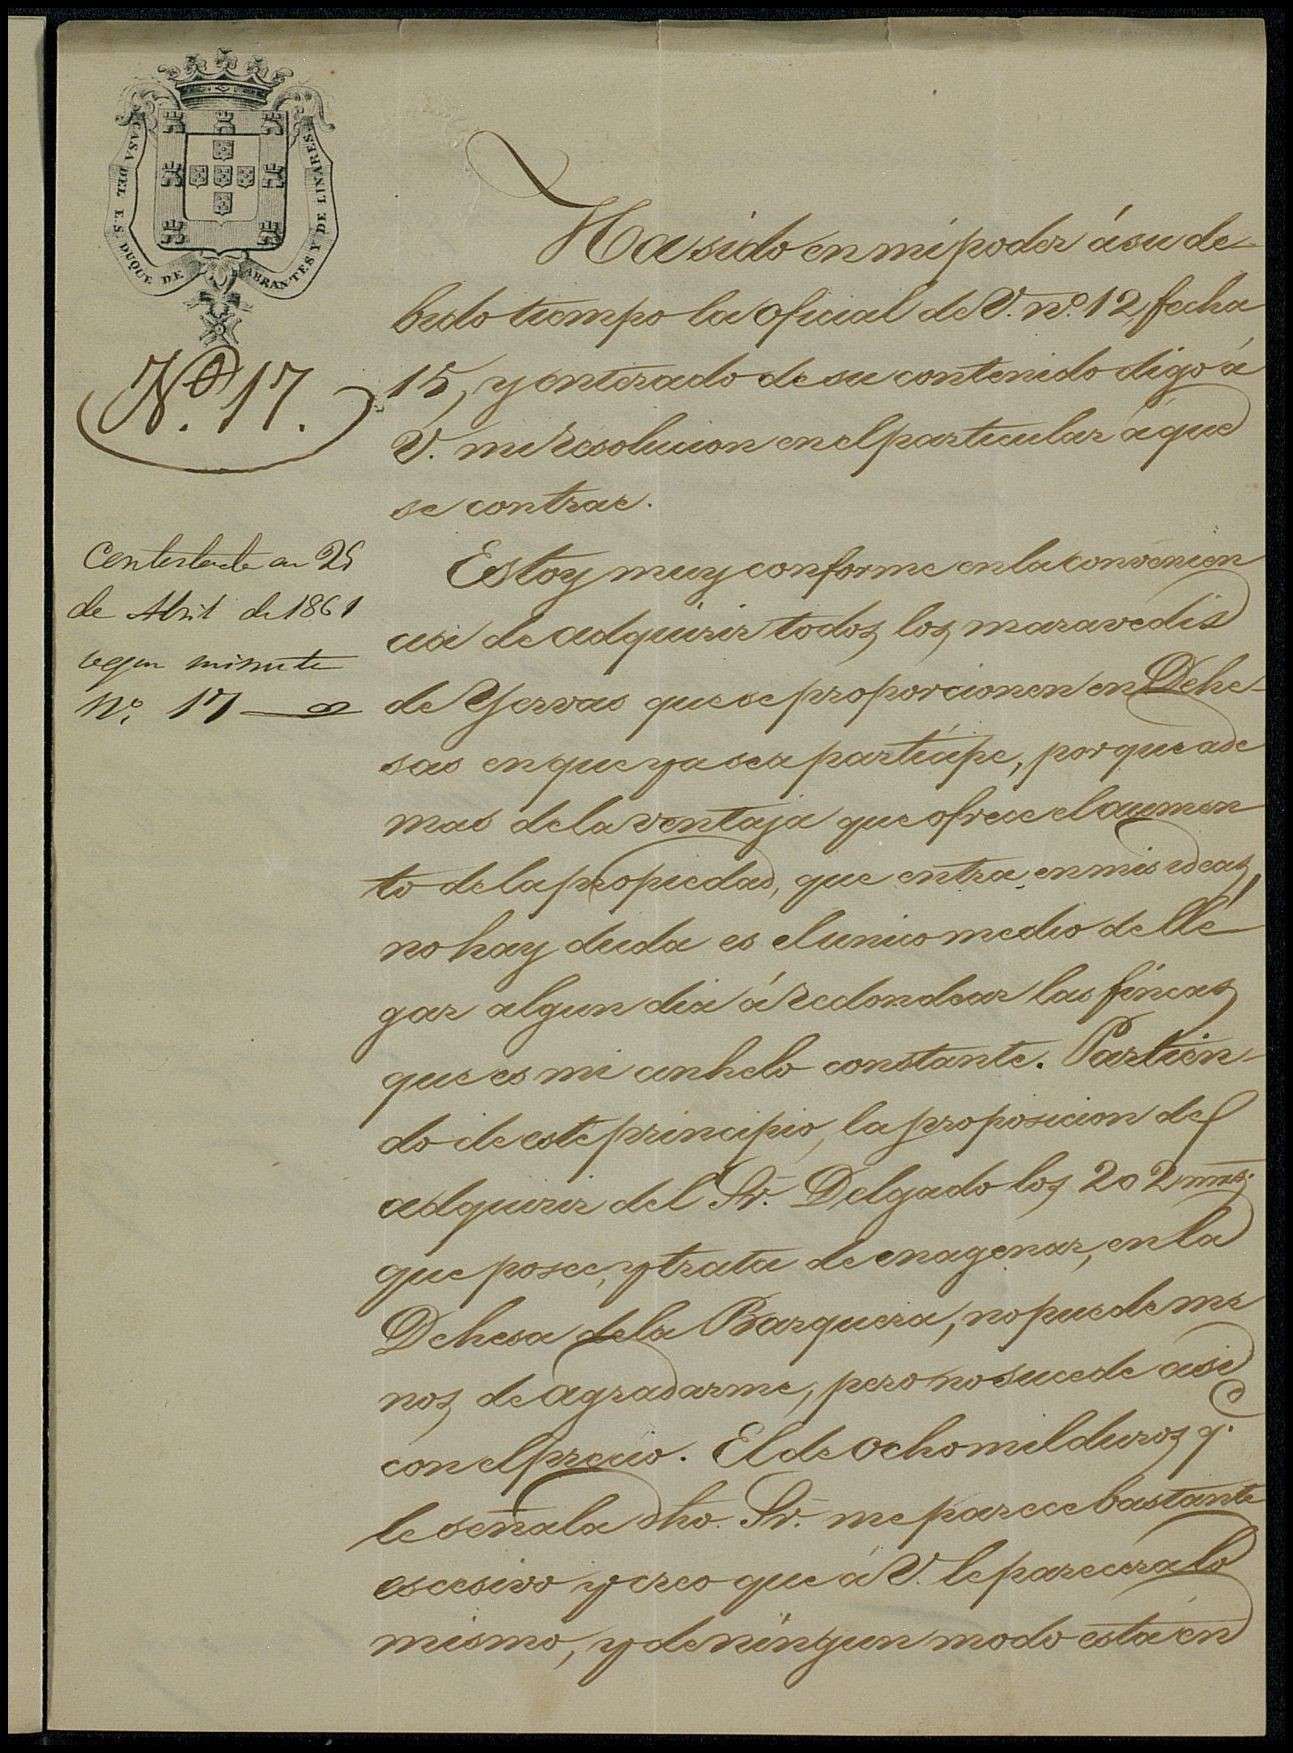 CASA DEL E.S. DUQUE DE ABRANTES Y DE LINARES
Nº. 17.
Contestada en 25
de Abril de 1861
segun minuta
Nº. 17
Ha sido en mi poder á su de-
bido tiempo la oficial de V. nº. 12, fecha
15, y enterado de su contenido digo á
V. mi resolucion en el particular á que
se contrae.
Estoy muy conforme en la convenien
cia de adquirir todos los maravedis
de Yervas que se proporcionen en Dehe-
sas en que ya sea participe, porque ade
mas de la ventaja que ofrece el aumen
to de la propiedad, que entra en mis ideas,
no hay duda es el unico medio de lle
gar algun dia á redondear las fincas
que es mi anhelo constante. Partien-
do de este principio, la proposicion de
adquirir del Sr. Delgado los 202 mrs.
que posee, y trata de enagenar, en la
Dehesa de la Barquera, no puede me
nos de agradarme, pero no sucede asi
con el precio. El de ocho mil duros q.
le señala dho. Sr. me parece bastante
escesivo y creo que á V. le parecerá lo
mismo, y de ningun modo está en